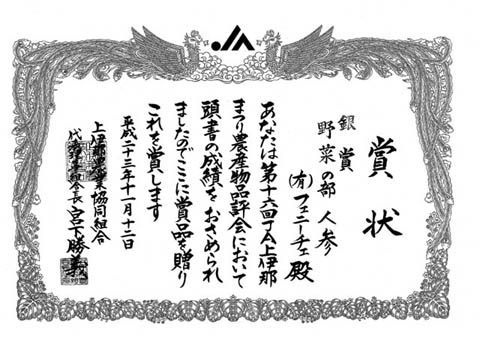 JA
賞状
銀賞
野菜の部 人参
(有)フェニーチェ殿
あなたは第十六回JA上伊那
まつり農産物品評会において
頭書の成績をおさめられ
ましたのでここに賞品を贈り
これを賞します
平成二十三年十一月十二日
上伊那農業協同組合
代表理事組合長 宮下勝義